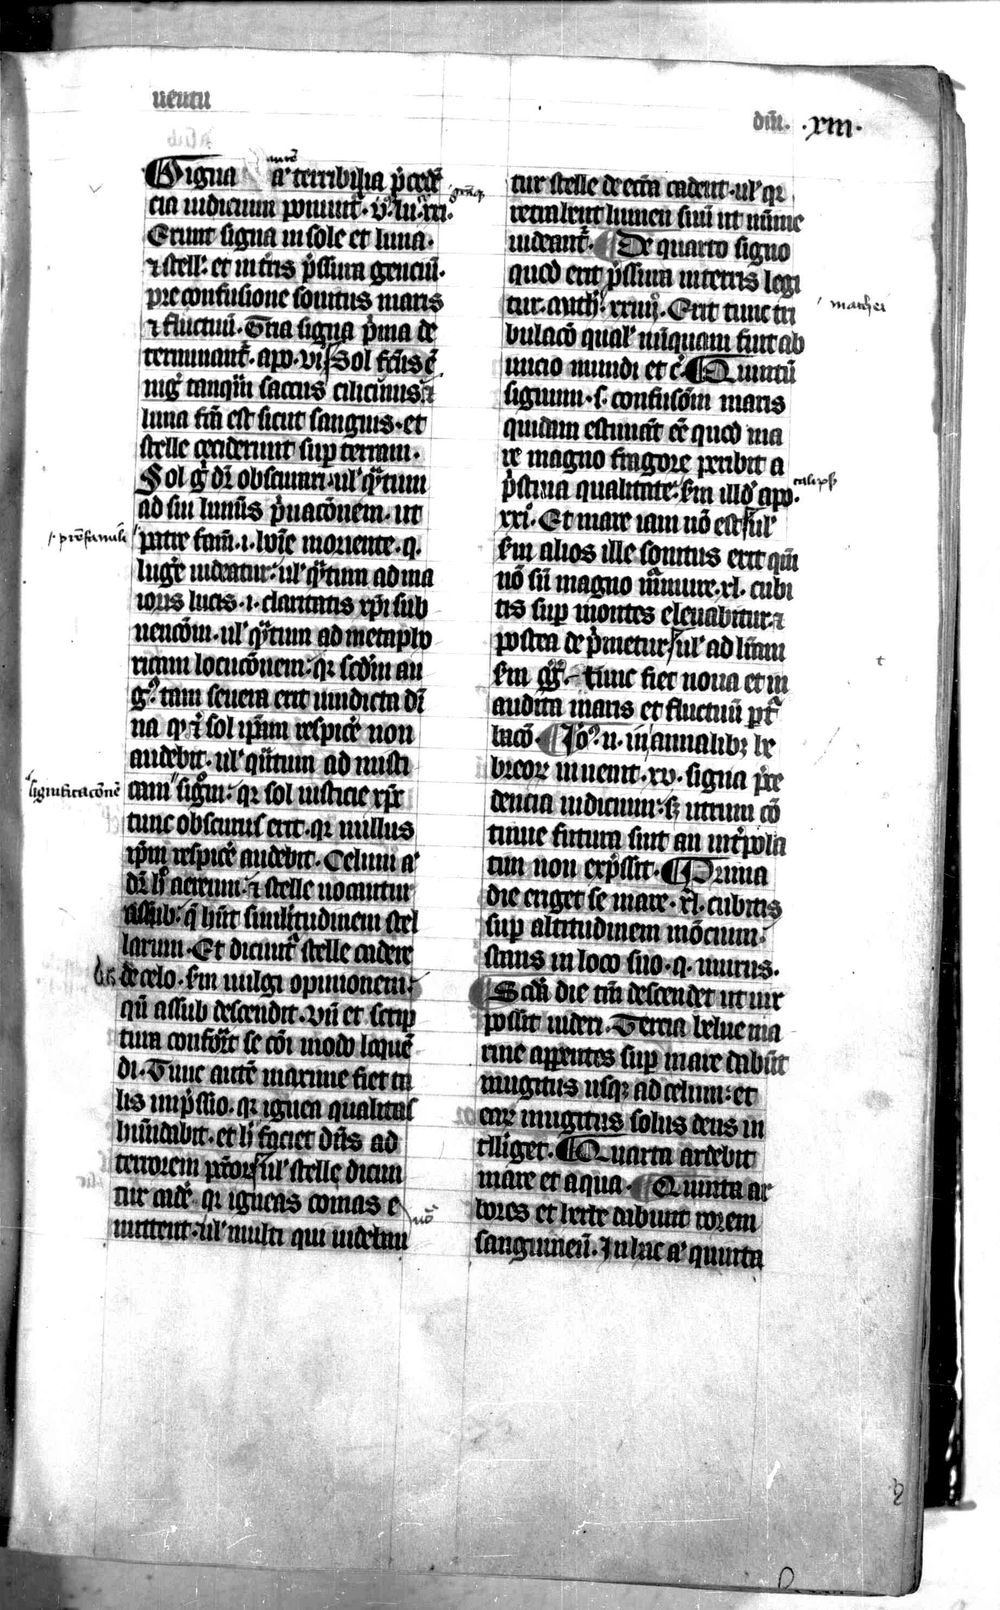 uentu
dñi. .xiii.
Signa aũt terribilia p̃cedẽ
cia iudicium ponunt᷑. vꝫ. lu. xxi.
Erunt signa in sole et luna.
⁊ stell᷑. et in t̃ris p̃ssura genciũ.
pre confusione sonitus maris
⁊ fluctuũ. Tria signa p̃ma de
terminant᷑. apo. vi. Sol fc̃us ẽ
nig̃ tanq̃m saccus cilicinus. ⁊
luna fc̃a est sicut sanguis. et
stelle ceciderunt sup terram.
Sol g̃ dr̃ obscurari. ul᷑ q̃tum
ad sui luminis p̃uacõnem. ut
/. p̃rẽfamilie
patre fam̃. i. hõie moriente. q.
luge᷑ uideatur. ul᷑ q̃tum ad ma
ioris lucis. i. claritatis xp̃i sub
uencõm. ul᷑ q̃tum ad metapho
ricam locucõnem. qꝛ scd̃m au
g᷑. tam seuera erit uindicta di
na qꝫ ⁊ sol ip̃am respice᷑ non
audebit. ul᷑ q̃tum ad misti
significacõnẽ
cam sig̃m. qꝛ sol iusticie xp̃c
tunc obscurus erit. qꝛ nullus
ip̃m respice᷑ audebit. Celum a᷑
dr̃ h᷑ aereum. ⁊ stelle uocantur
assub. q̃ hñt similitudinem stel
larum. Et dicunt᷑ stelle cadere
de celo. sm̃ uulgi opinionem.
qñ assub descendit. Vñ et scrip
tura conform̃t se cõi modo loquẽ
di. Tunc autẽ maxime fiet ta
lis imp̃ssio. qꝛ ignea qualitas
habũdabit. et h᷑ faciet dñs ad
terrorem pctõrꝫ ul᷑ stelle dicun
tur cade᷑. qꝛ igneas comas e
mittent. ul᷑ multi qui uideban
tur stelle de ecc̃a cadent. ul᷑ qꝛ
retrahent lumen suũ ut mĩme
uideant᷑. De quarto signo
quod erit p̃ssura in terris legi
mathei
tur. math᷑. xxiiijᵒ. Erit tunc tri
bulacõ qual᷑ nũquam fuit ab
inicio mundi et c᷑. Quintũ
signum. s. confusõm maris
quidam estimãt eẽ quod ma
re magno fragore peribit a
p̃stina qualitate. sm̃ illd᷑ apo.
calipsꝫ
xxi. Et mare iam nõ est. ul᷑
sm̃ alios ille sonitus erit qm̃
nõ sñ magno m̃mure. xl. cubi
tis sup montes eleuabitur. ⁊
postea dep̃metur. ul᷑ ad lr̃am
sm̃ gg᷑. tunc fiet noua et in
audita maris et fluctuũ pt᷑
bacõ. Jo᷑. n. in annalibꝫ he
breorꝫ inuenit. xv. signa p̃ce
dencia iudicium. sꝫ utrum cõ
tinue futura sint an int᷑pola
tim non exp̃ssit. Prima
die eriget se mare. xl. cubitis
sup altitudinem mõcium.
stans in loco suo. q. murus.
Scd̃a die tm̃ descendet ut uix
possit uideri. Tercia belue ma
rine apparentes sup mare dabũt
mugitus usqꝫ ad celum. et
eorꝫ mugitus solus deus in
telliget. Quarta ardebit
mare et aqua. Quinta ar
bores et herbe dabunt rorem
sanguineũ. In hac a᷑ quinta